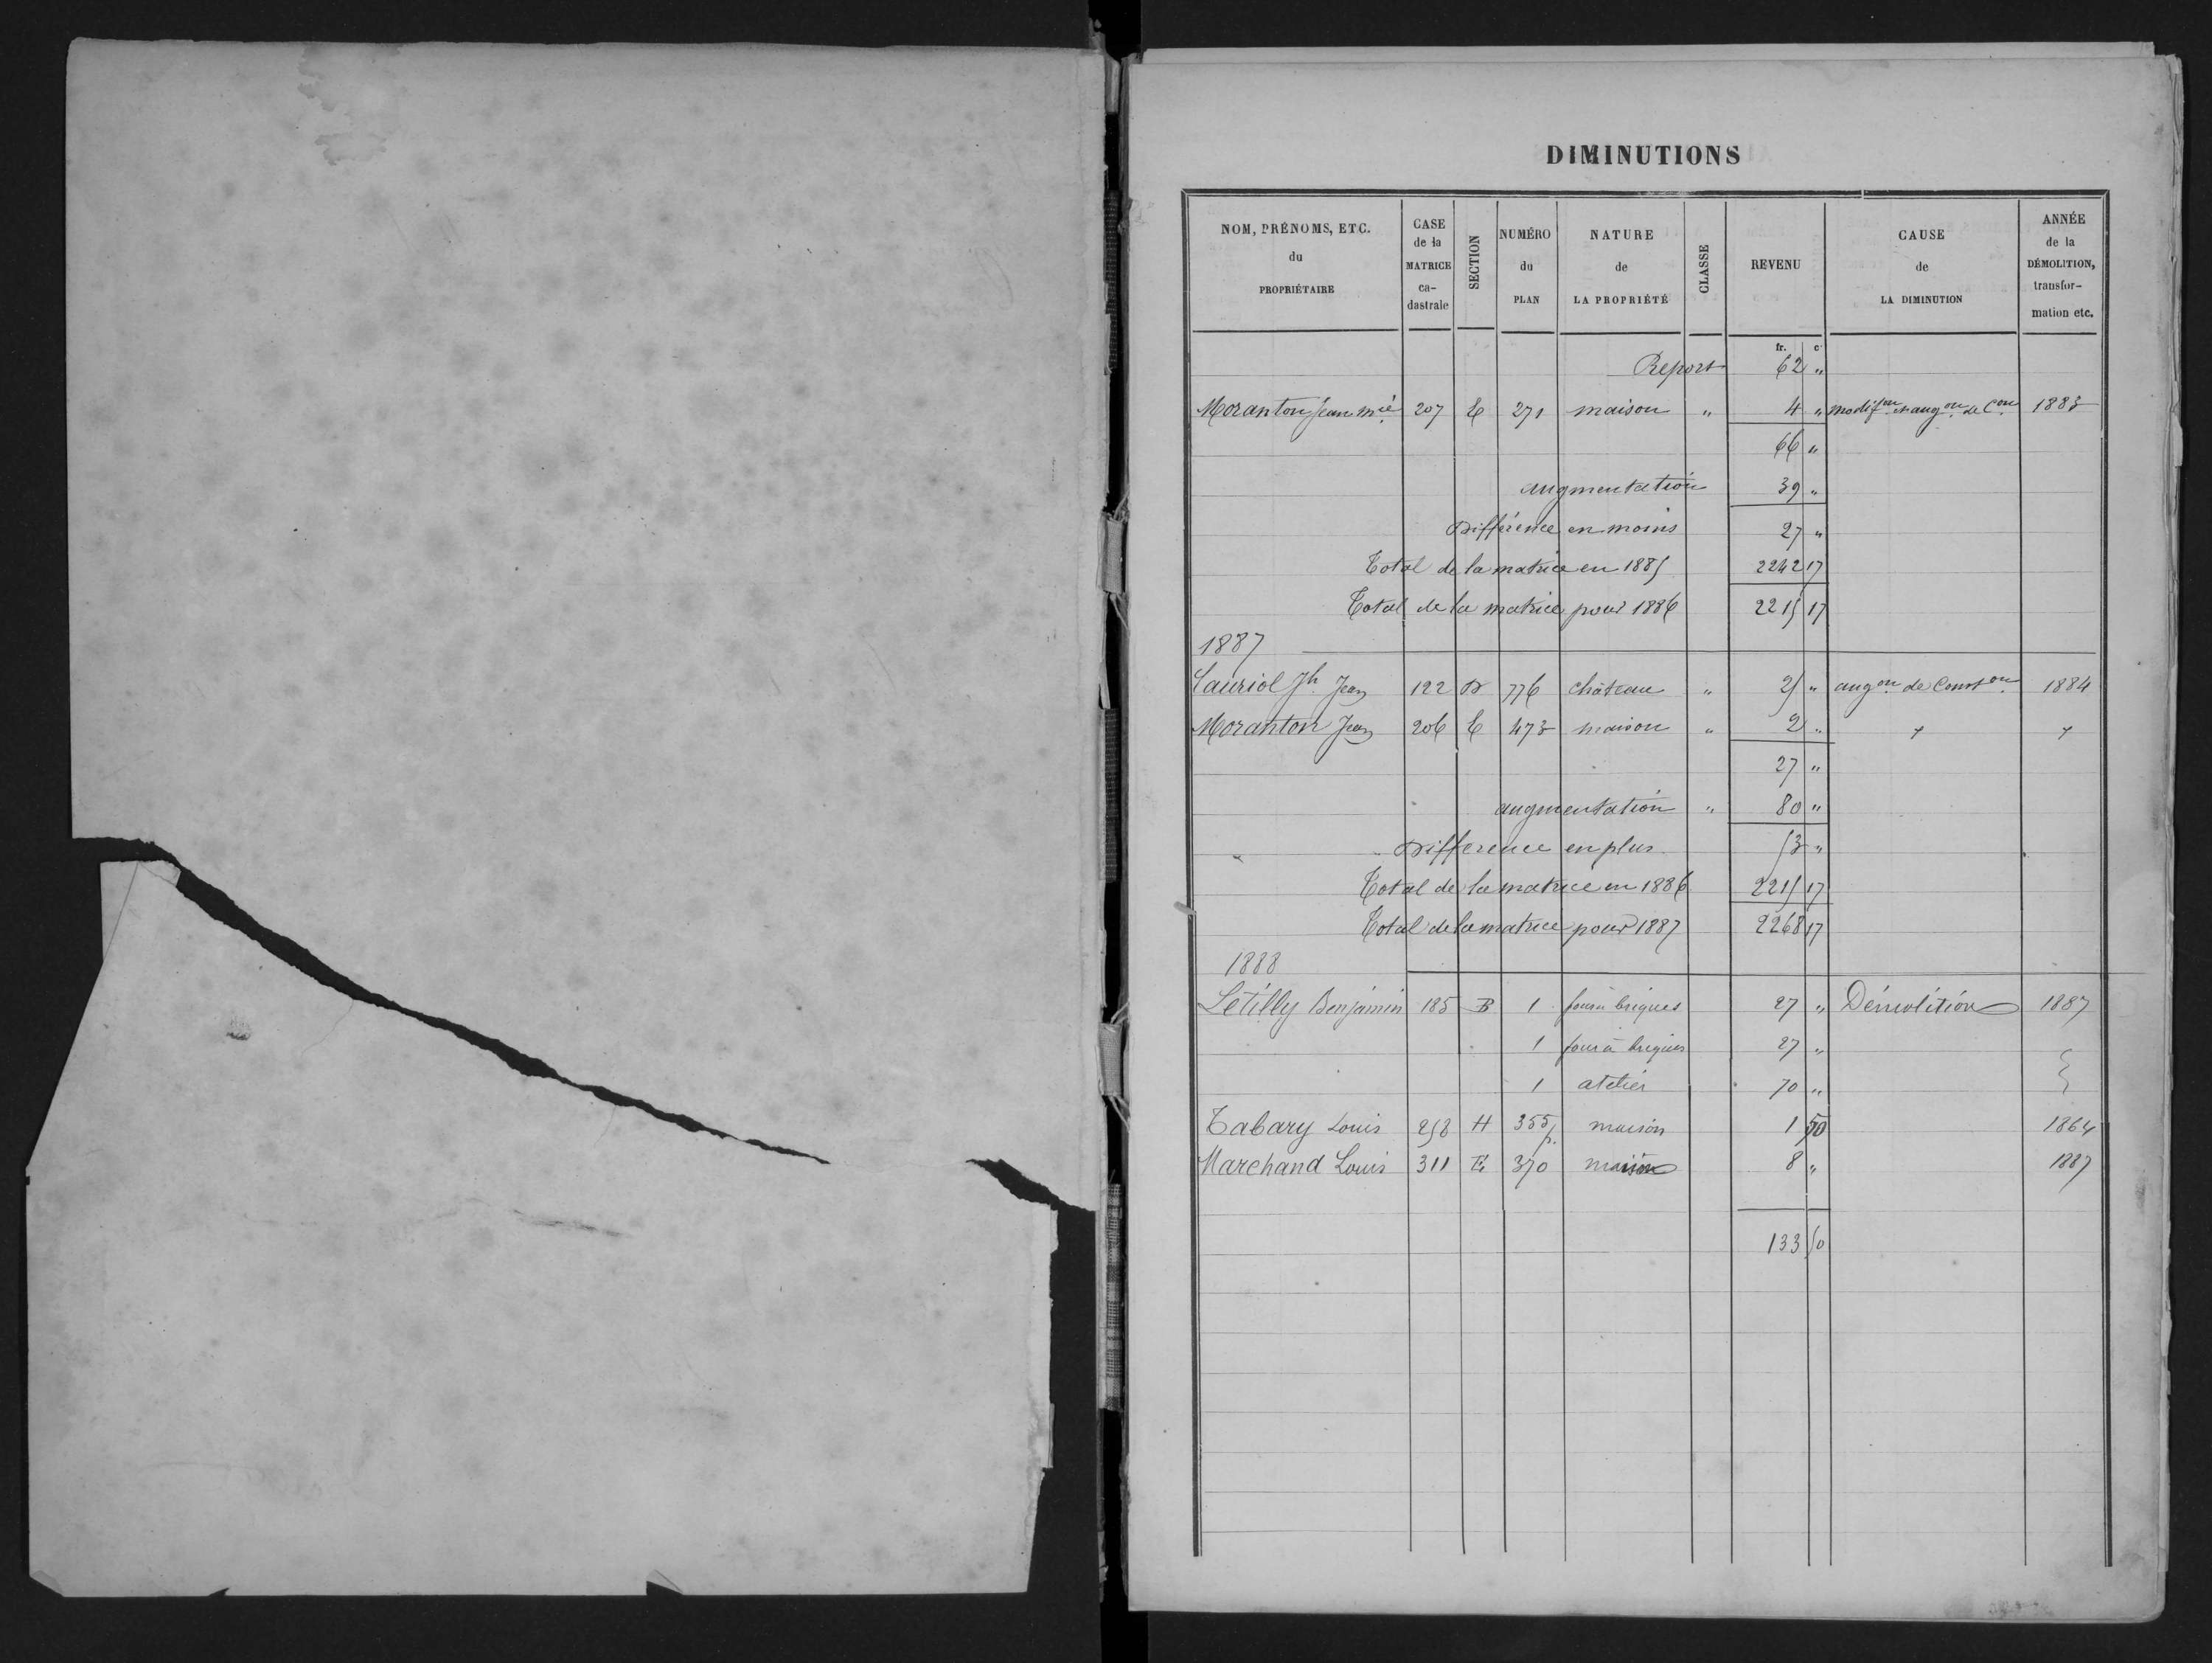 DIMINUTIONS
NOM, PRÉNOMS, ETC. du PROPRIÉTAIRE | CASE de la MATRICE ca-dastrale | SECTION | NUMÉRO du PLAN | NATURE de LA PROPRIÉTÉ | CLASSE | REVENU | CAUSE de LA DIMINUTION | ANNÉE de la DÉMOLITION, transfor-mation etc.
fr. c
Report 62 "
Moranton Jean mié 207 E 271 maison " 4 " modifon et augon de Con 1883
66 "
augmentation 39 "
Différence en moins 27 "
Total de la matrice en 1885 2242 17
Total de la matrice pour 1886 2215 17
1887
Lauriol Jh Jean 122 D 776 château " 25 " augon de Conston 1884
Moranton Jean 206 E 473 maison " 2 " + +
27 "
augmentation " 80 "
" Différence en plus 53 "
Total de la matrice en 1886 2215 17
Total de la matrice pour 1887 2268 17
1888
Létilly Benjamin 185 B 1 four à briques 27 " Démolition 1887
1 four à briques 27 "
1 atelier 70 "
Tabary Louis 258 H 355 p. maison 1 50 1864
Marchand Louis 311 E 370 maison 8 " 1887
133 50